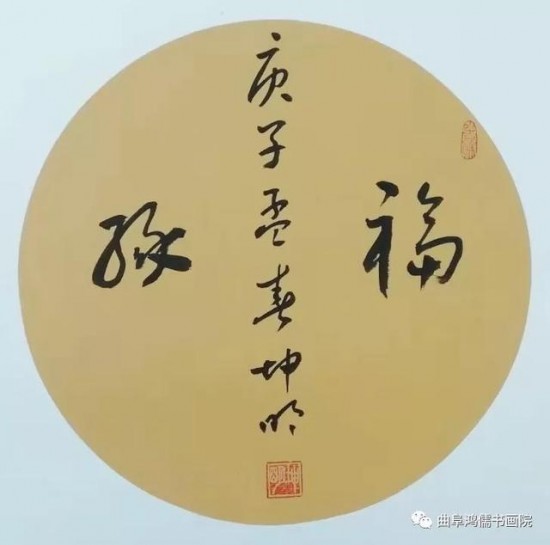 福缘
庚子孟春坤明
曲阜鸿儒书画院